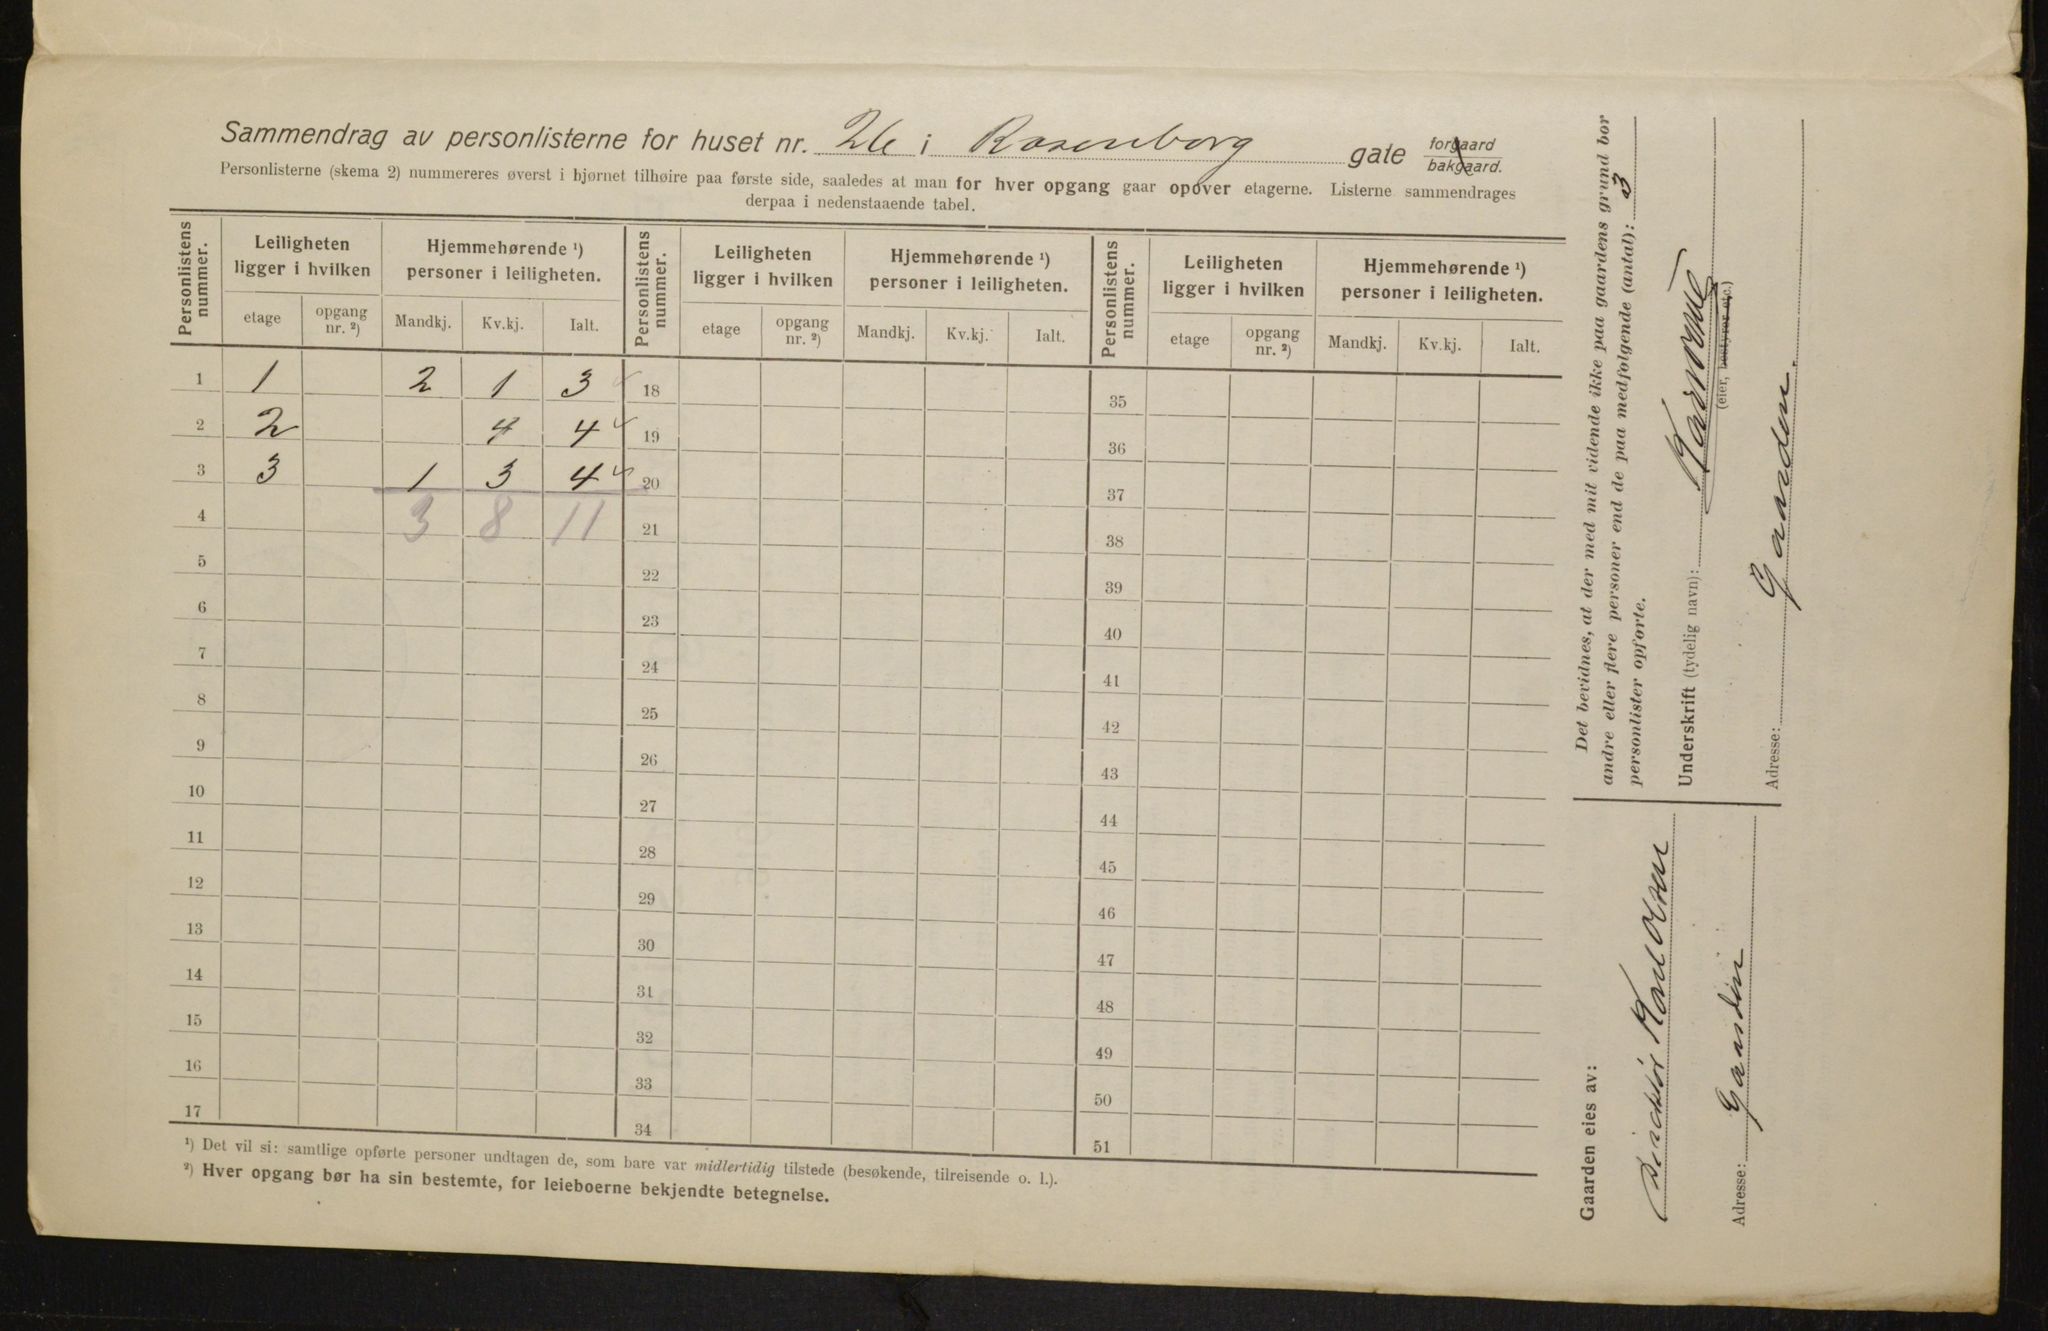 Sammendrag av personlisterne for huset nr. 26 i Rosenborg gate forgaard bakgaard.
Personlisterne (skema 2) nummereres øverst i hjørnet tilhøire paa første side, saaledes at man for hver opgang gaar opover etagerne. Listerne sammendrages
derpaa i nedenstaaende tabel.
Personlistens nummer. Leiligheten ligger i hvilken Hjemmehørende ¹) personer i leiligheten. Personlistens nummer. Leiligheten ligger i hvilken Hjemmehørende ¹) personer i leiligheten. Personlistens nummer. Leiligheten ligger i hvilken Hjemmehørende ¹) personer i leiligheten.
etage opgang nr. ²) Mandkj. Kv.kj. Ialt. etage opgang nr. ²) Mandkj. Kv.kj. Ialt. etage opgang nr. ²) Mandkj. Kv.kj. Ialt.
1 1 2 1 3 18 35
2 2 4 4 19 36
3 3 1 3 4 20 37
4 3 8 11 21 38
5 22 39
6 23 40
7 24 41
8 25 42
9 26 43
10 27 44
11 28 45
12 29 46
13 30 47
14 31 48
15 32 49
16 33 50
17 34 51
¹) Det vil si: samtlige opførte personer undtagen de, som bare var midlertidig tilstede (besøkende, tilreisende o. l.).
²) Hver opgang bør ha sin bestemte, for leieboerne bekjendte betegnelse.
Det bevidnes, at der med mit vidende ikke paa gaardens grund bor
andre eller flere personer end de paa medfølgende (antal): 3
personlister opførte.
Underskrift (tydelig navn):
(eier, bestyrer etc.)
Adresse: Gaarden.
Gaarden eies av:
Direktør Karl Olsen
Adresse: Gaarden